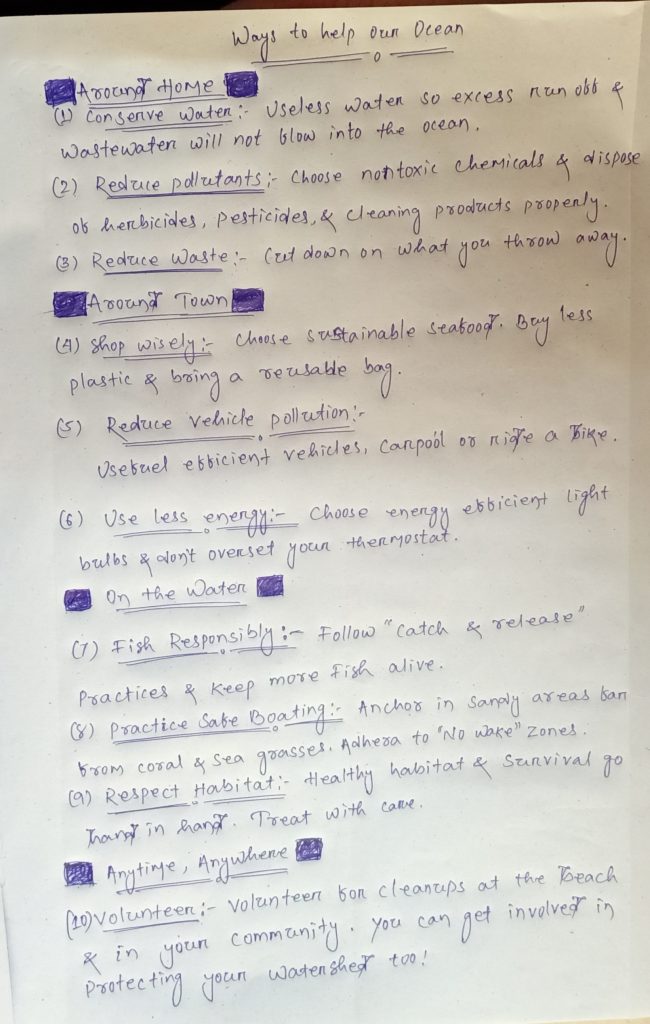 Ways to help our Ocean
Around Home
(1) Conserve Water:- Useless water so excess run off &
wastewater will not flow into the ocean.
(2) Reduce pollutants:- Choose nontoxic chemicals & dispose
of herbicides, pesticides, & cleaning products properly.
(3) Reduce Waste:- Cut down on what you throw away.
Around Town
(4) Shop wisely:- Choose sustainable seafood. Buy less
plastic & bring a reusable bag.
(5) Reduce vehicle pollution:-
Usefuel efficient vehicles, carpool or ride a Bike.
(6) Use less energy:- Choose energy efficient light
bulbs & don't overset your thermostat.
On the Water
(7) Fish Responsibly:- Follow "catch & release"
Practices & keep more Fish alive.
(8) Practice Safe Boating:- Anchor in sandy areas far
from coral & sea grasses. Adhera to "No wake" zones.
(9) Respect Habitat:- Healthy habitat & Survival go
hand in hand. Treat with care.
Anytime, Anywhere
(10) Volunteer:- Volunteer for cleanups at the Beach
& in your community. You can get involved in
Protecting your watershed too!